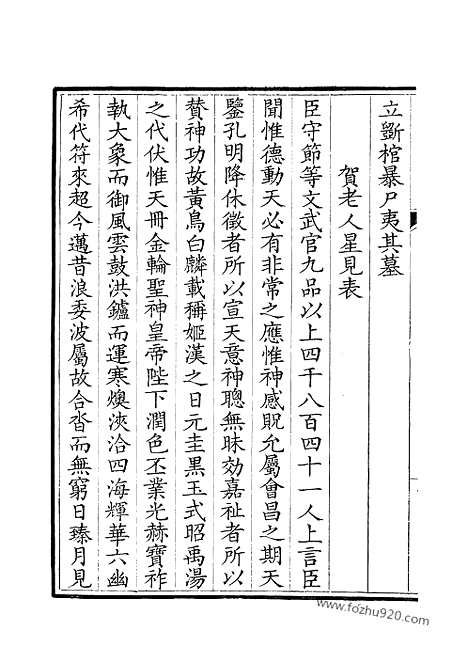 立斵棺暴尸夷其墓
賀老人星見表
臣守節等文武官九品以上四千八百四十一人上言臣
聞惟德動天必有非常之應惟神感貺允屬會昌之期天
鑒孔明降休徵者所以宣天意神聰無昧効嘉祉者所以
賛神功故黃鳥白麟載稱姬漢之日元圭黒玉式昭禹湯
之代伏惟天冊金輪聖神皇帝陛下潤色丕業光赫寶祚
執大象而御風雲鼓洪鑪而運寒燠浹洽四海輝華六幽
希代符來超今邁昔浪委波屬故合沓而無窮日臻月見
www.fozhu920.com